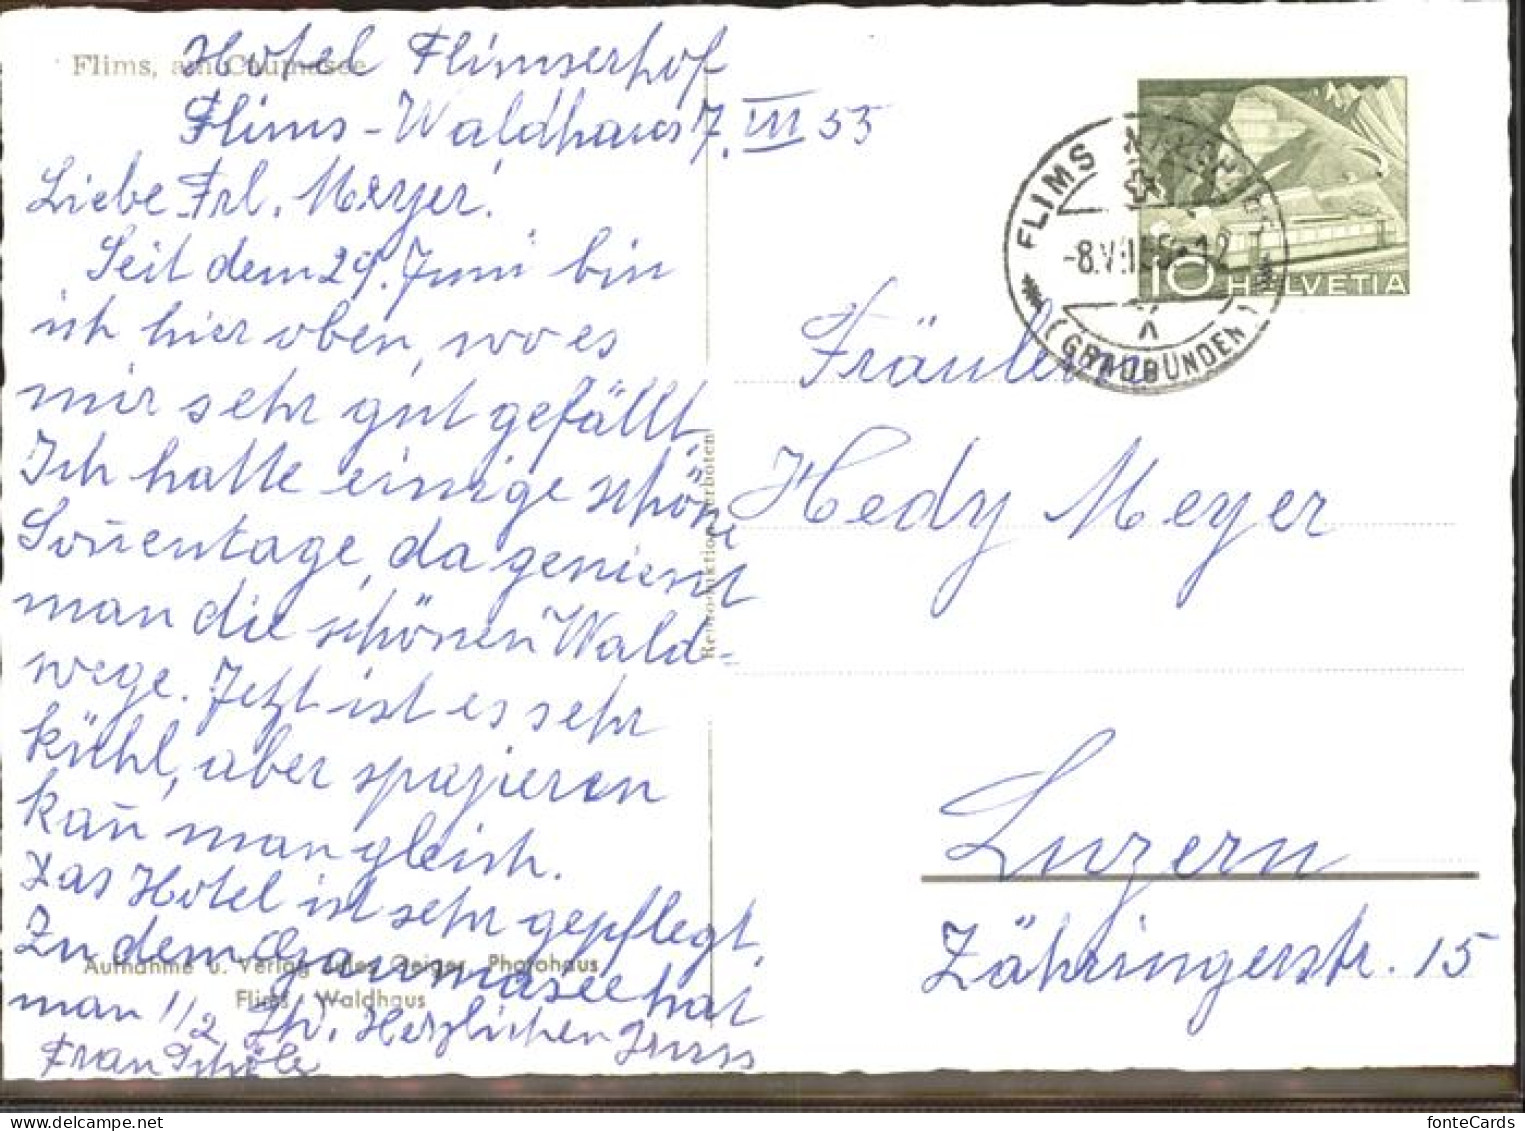 Flims, am Caumasee
Hotel Flimserhof
Flims-Waldhaus 7. VII 55
Liebe Frl. Meyer!
Seit dem 29. Juni bin
ich hier oben, wo es
mir sehr gut gefällt.
Ich hatte einige schöne
Soñentage, da geniesst
man die schönen Wald-
wege. Jetzt ist es sehr
kühl, aber spazieren
kañ man gleich.
Das Hotel ist sehr gepflegt.
Zu dem Caumasee hat
man 1/2 Std. Herzlichen Gruss
Frau
Aufnahme u. Verlag Jules Geiger, Photohaus
Flims - Waldhaus
Reproduktion verboten
FLIMS WALDHAUS
-8.VII.55-12
X
(GRAUBÜNDEN)
10 HELVETIA
Fräulein
Hedy Meyer
Luzern
Zähringerstr. 15
fonteCards